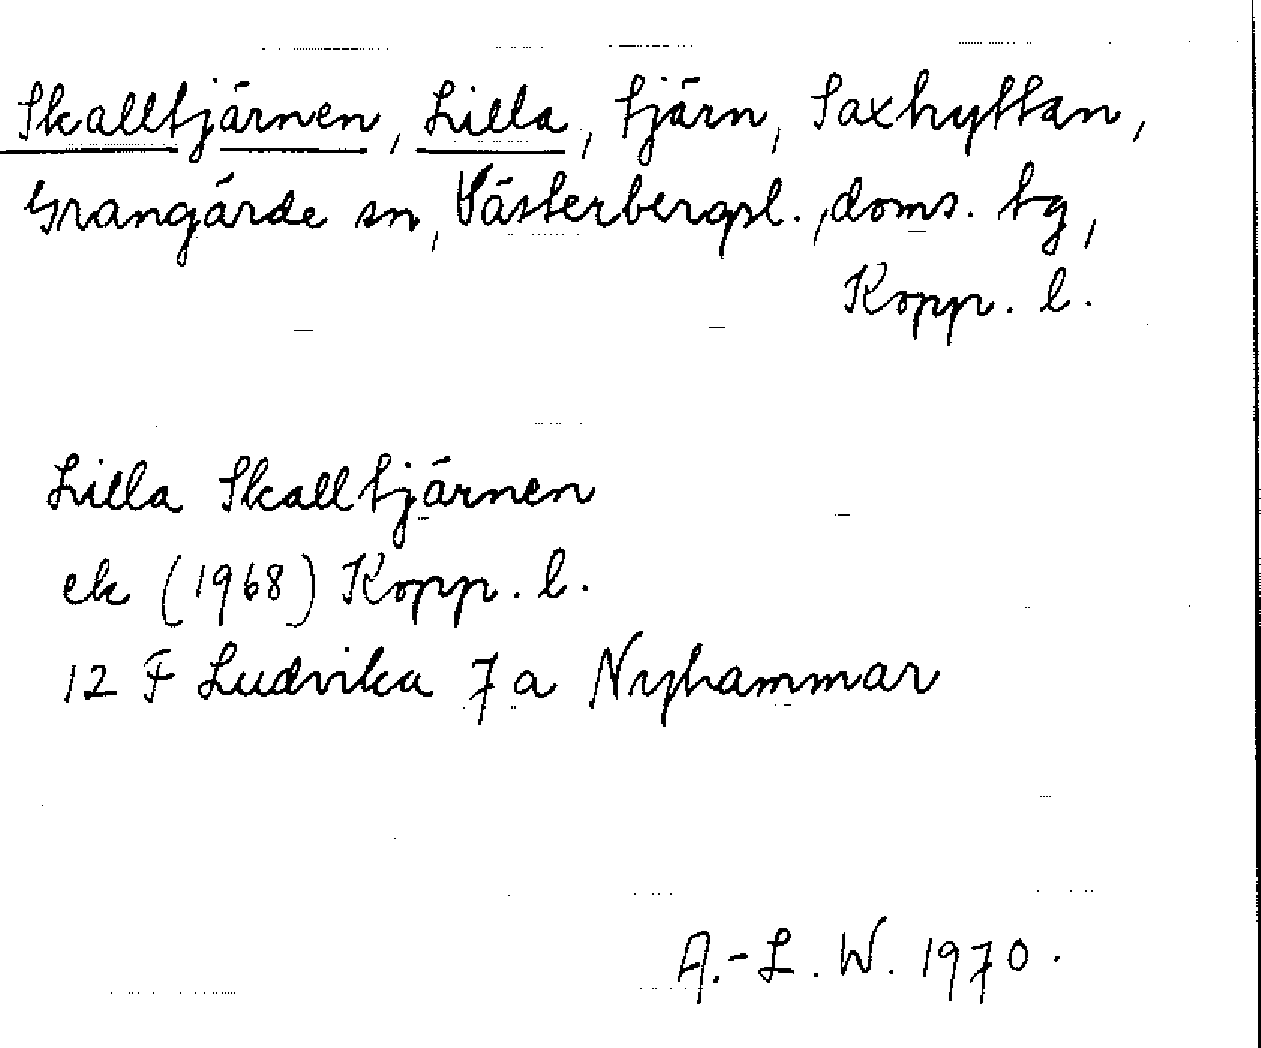 Skalltjärnen, Lilla, tjärn, Saxhyttan,
Grangärde sn, Västerbergsl., doms. tg,
Kopp. l.
Lilla Skalltjärnen
ek (1968) Kopp. l.
12 F Ludvika 7 a Nyhammar
A.-L. W. 1970.